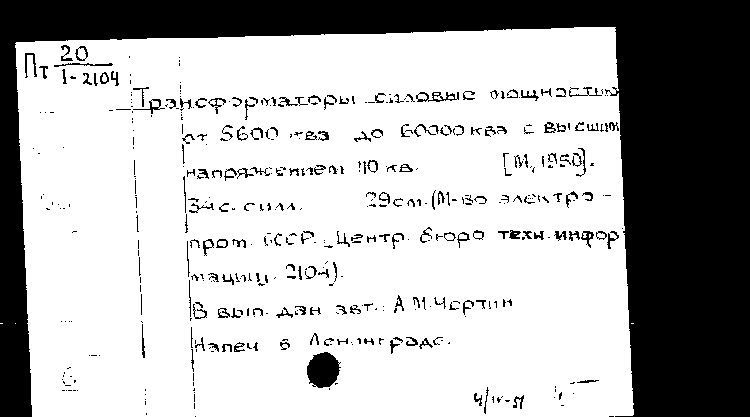 Пт 20
1-2104
Трансформаторы силовые мощностью
от 5600 ква до 60000 ква с высшим
напряжением 110 кв. [М, 1950].
34 с. с илл. 29 см. (М-во электро-
пром. СССР. Центр. бюро техн. инфор
мации. 2104).
В вып. дан авт.: А.М. Чертин
Напеч в Ленинграде.
6
4/IV-51